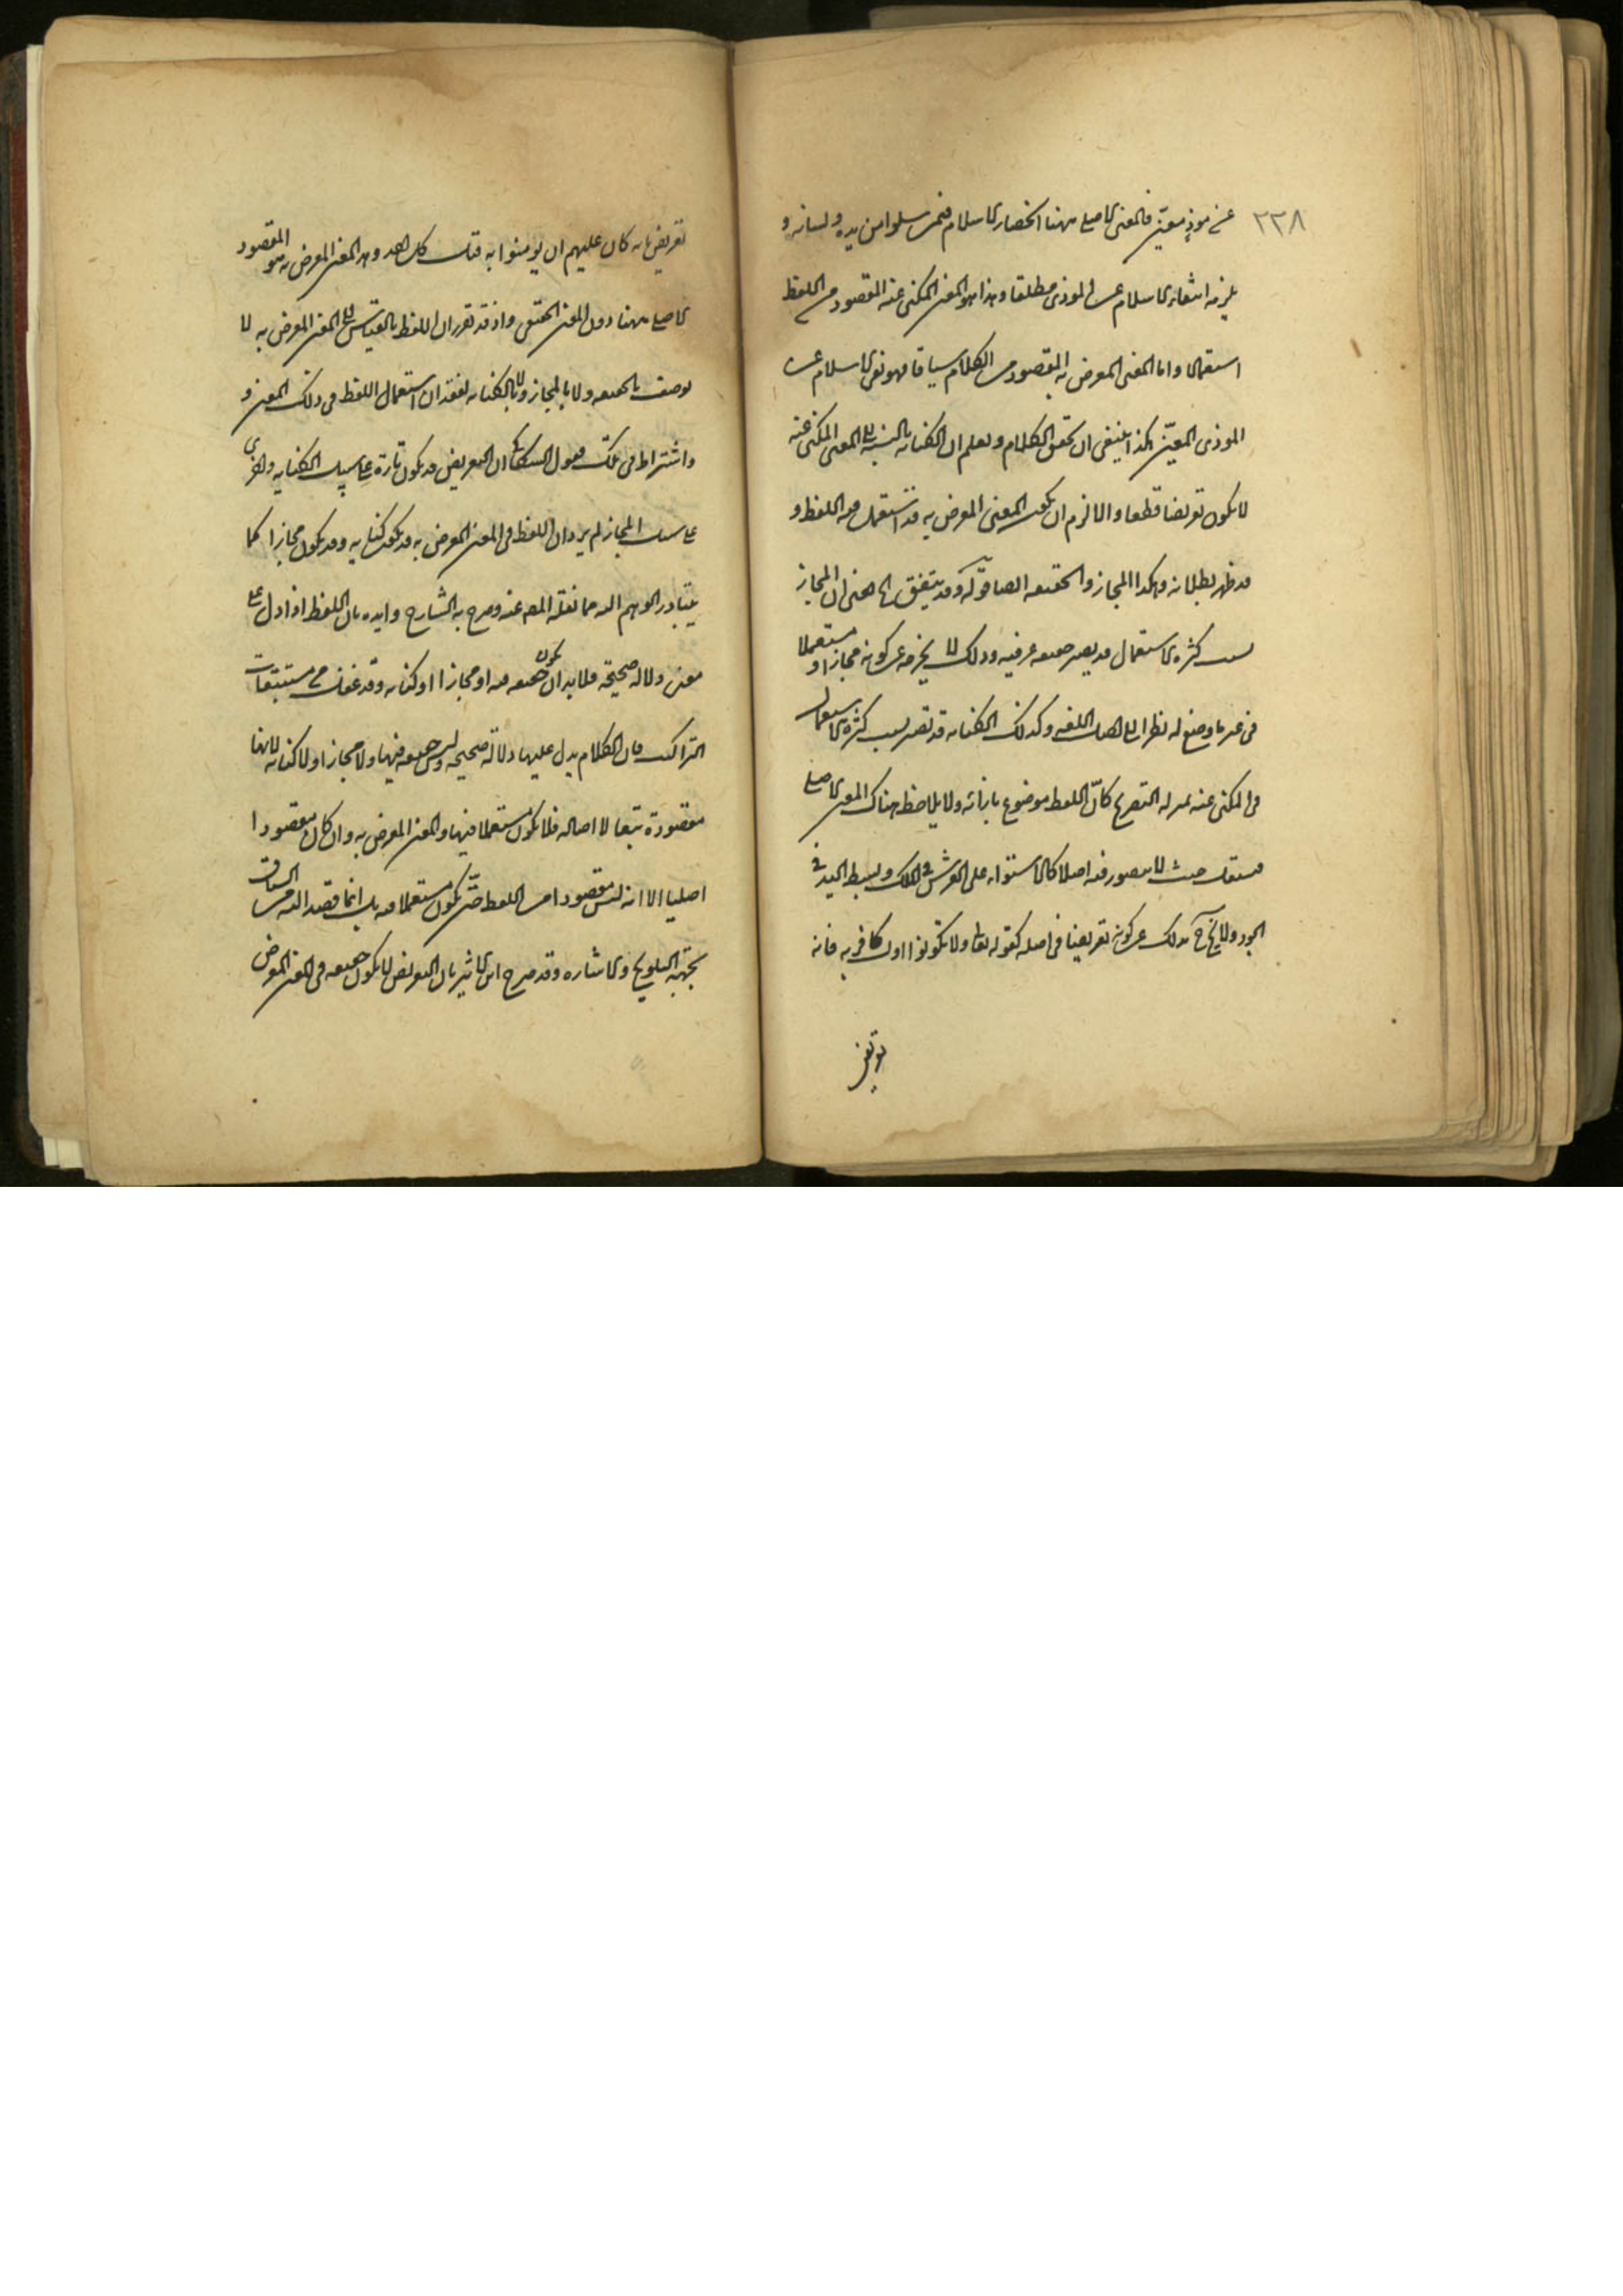 ٢٢٨
عن موذٍ معيّن فالمعنى الاصلى ههنا انحصار الاسلام فيمن سلموا من يده ولسانه و
يلزمه انتفاء الاسلام عن الموذى مطلقا وهذا هو المعنى المكنى عنه المقصود من اللفظ
استعمالا واما المعنى المعرض به المقصود من الكلام سياقا فهو نفى الاسلام عن
الموذى المعيّن هكذا ينبغى ان تحقق الكلام ويعلم ان الكناية بالنسبة الى المعنى المكنى عنه
لا يكون تعريضا قطعا والا لزم ان يكون المعنى المعرض به قد استعمل فيه اللفظ و
قد ظهر بطلانه وهكذا المجاز والحقيقة ايضا قوله وقد يتفق الى اخره ان المجاز
بسبب كثرة الاستعمال قد يصير حقيقة عرفية وذلك لا يخرجه عن كونه مجازا و مستعملا
فى غير ما وضع له نظرا الى اصل اللغه وكذلك الكناية قد تصير بسبب كثرة الاستعمال
فى المكنى عنه بمنزلة التصريح كانّ اللفظ موضوع بازائه ولا يلاحظ هناك المعنى الاصلى
مستعمل حيث لا يتصور فيه اصلا كالاستواء على العرش فى الملك وبسط اليد فى
الجود ولا يخرج بذلك عن كونه تعريضا فى اصله كقوله تعالى ولا تكونوا اول كافر به فانه
تعريض بانه كان عليهم ان يومنوا به قبل كل احد وهذا المعنى المعرض به هو المقصود
الاصلى ههنا دون المعنى الحقيقى واذ قد تقرر ان اللفظ بالقياس الى المعنى المعرض به لا
يوصف بالحقيقة ولا بالمجاز ولا بالكناية لفقدان استعمال اللفظ فى ذلك المعنى و
واشتراط فى تلك فقول السكاكى ان التعريض قد يكون تارة على سبيل الكناية واخرى
على سبيل المجاز لم يرد ان اللفظ فى المعنى المعرض به قد يكون كناية وقد يكون مجازا كما
يتبادر الوهم اليه مما نقله المص عنه وصرح به الشارح وايده بان اللفظ اذا دل على
معنى دلالة صحيحة فلا بد ان يكون حقيقة فيه او مجازا او كناية وقد غفل عن مستتبعات
التراكيب فان الكلام يدل عليها دلالة صحيحة وليس حقيقة فيها ولا مجازا ولا كناية لانها
مقصودة تبعا لا اصالة فلا يكون مستعملا فيها والمعنى المعرض به وان كان مقصودا
اصليا الا انه ليس مقصودا من اللفظ حتى يكون مستعملا فيه بل انما قصد اليه من السياق
بجهة التلويح والاشارة وقد صرح ابن الاثير بان التعريض لا يكون حقيقة فى المعنى المعرض